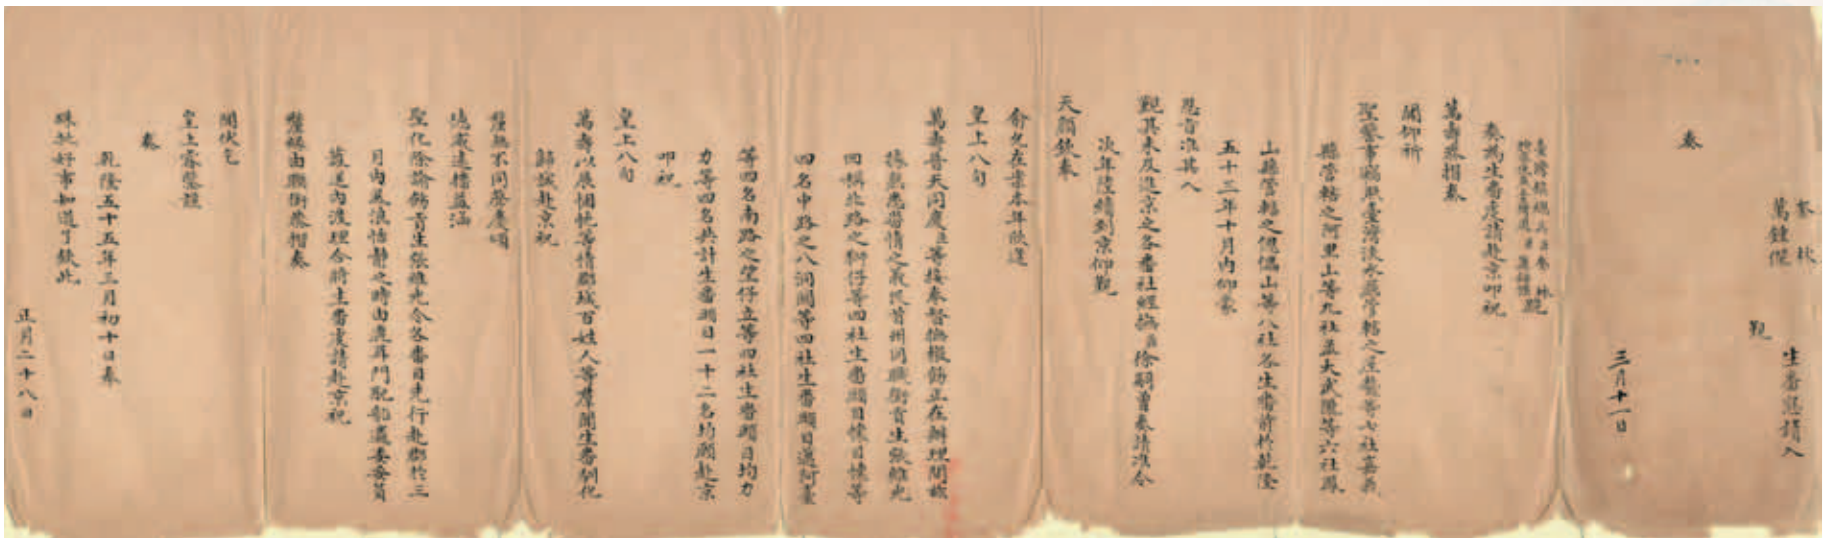 奎林
萬鍾傑
生番懇請入
覲
奏
三月十一日
奏為生番虔請赴京叩祝
萬壽恭摺奏
聞仰祈
聖鑒事竊照臺灣淡水廳管轄之屋鰲等七社嘉義
縣管轄之阿里山等九社並大武壠等六社鳳
山縣管轄之傀儡山等八社各生番前於乾隆
五十三年十月內仰蒙
恩旨准其入
覲其未及進京之各番社經撫臣徐嗣曾奏請准令
次年陸續到京仰覲
天顏欽奉
俞允在案本年欣逢
皇上八旬
萬壽普天同慶臣等接奉督撫檄飭正在辦理間據
據熟悉番情之義民首州同職銜貢生張維光
回稱北路之獅仔等四社生番頭目懷目懷等
四名中路之八洞關等四社生番頭目邁阿臺
等四名南路之望仔立等四社生番頭目均力
力等四名共計生番頭目一十二名均願赴京
叩祝
皇上八旬
萬壽以展悃忱等情郡城百姓人等羣聞生番馴化
歸誠赴京祝
釐無不同聲慶頌
堯咸遠播
聖化除諭飭貢生張維光令各番目先行赴郡於三
月內風浪恬靜之時由鹿耳門配船遴委妥員
護送內渡理合將生番虔請赴京祝
釐緣由聯銜恭摺奏
聞伏乞
皇上睿鑒謹
奏
乾隆五十五年三月初十日奉
硃批好事知道了欽此
正月二十八日